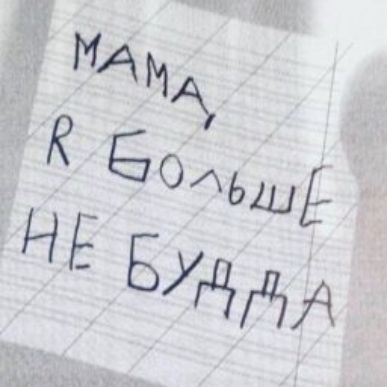 МАМА,
Я БОЛЬШЕ
НЕ БУДДА